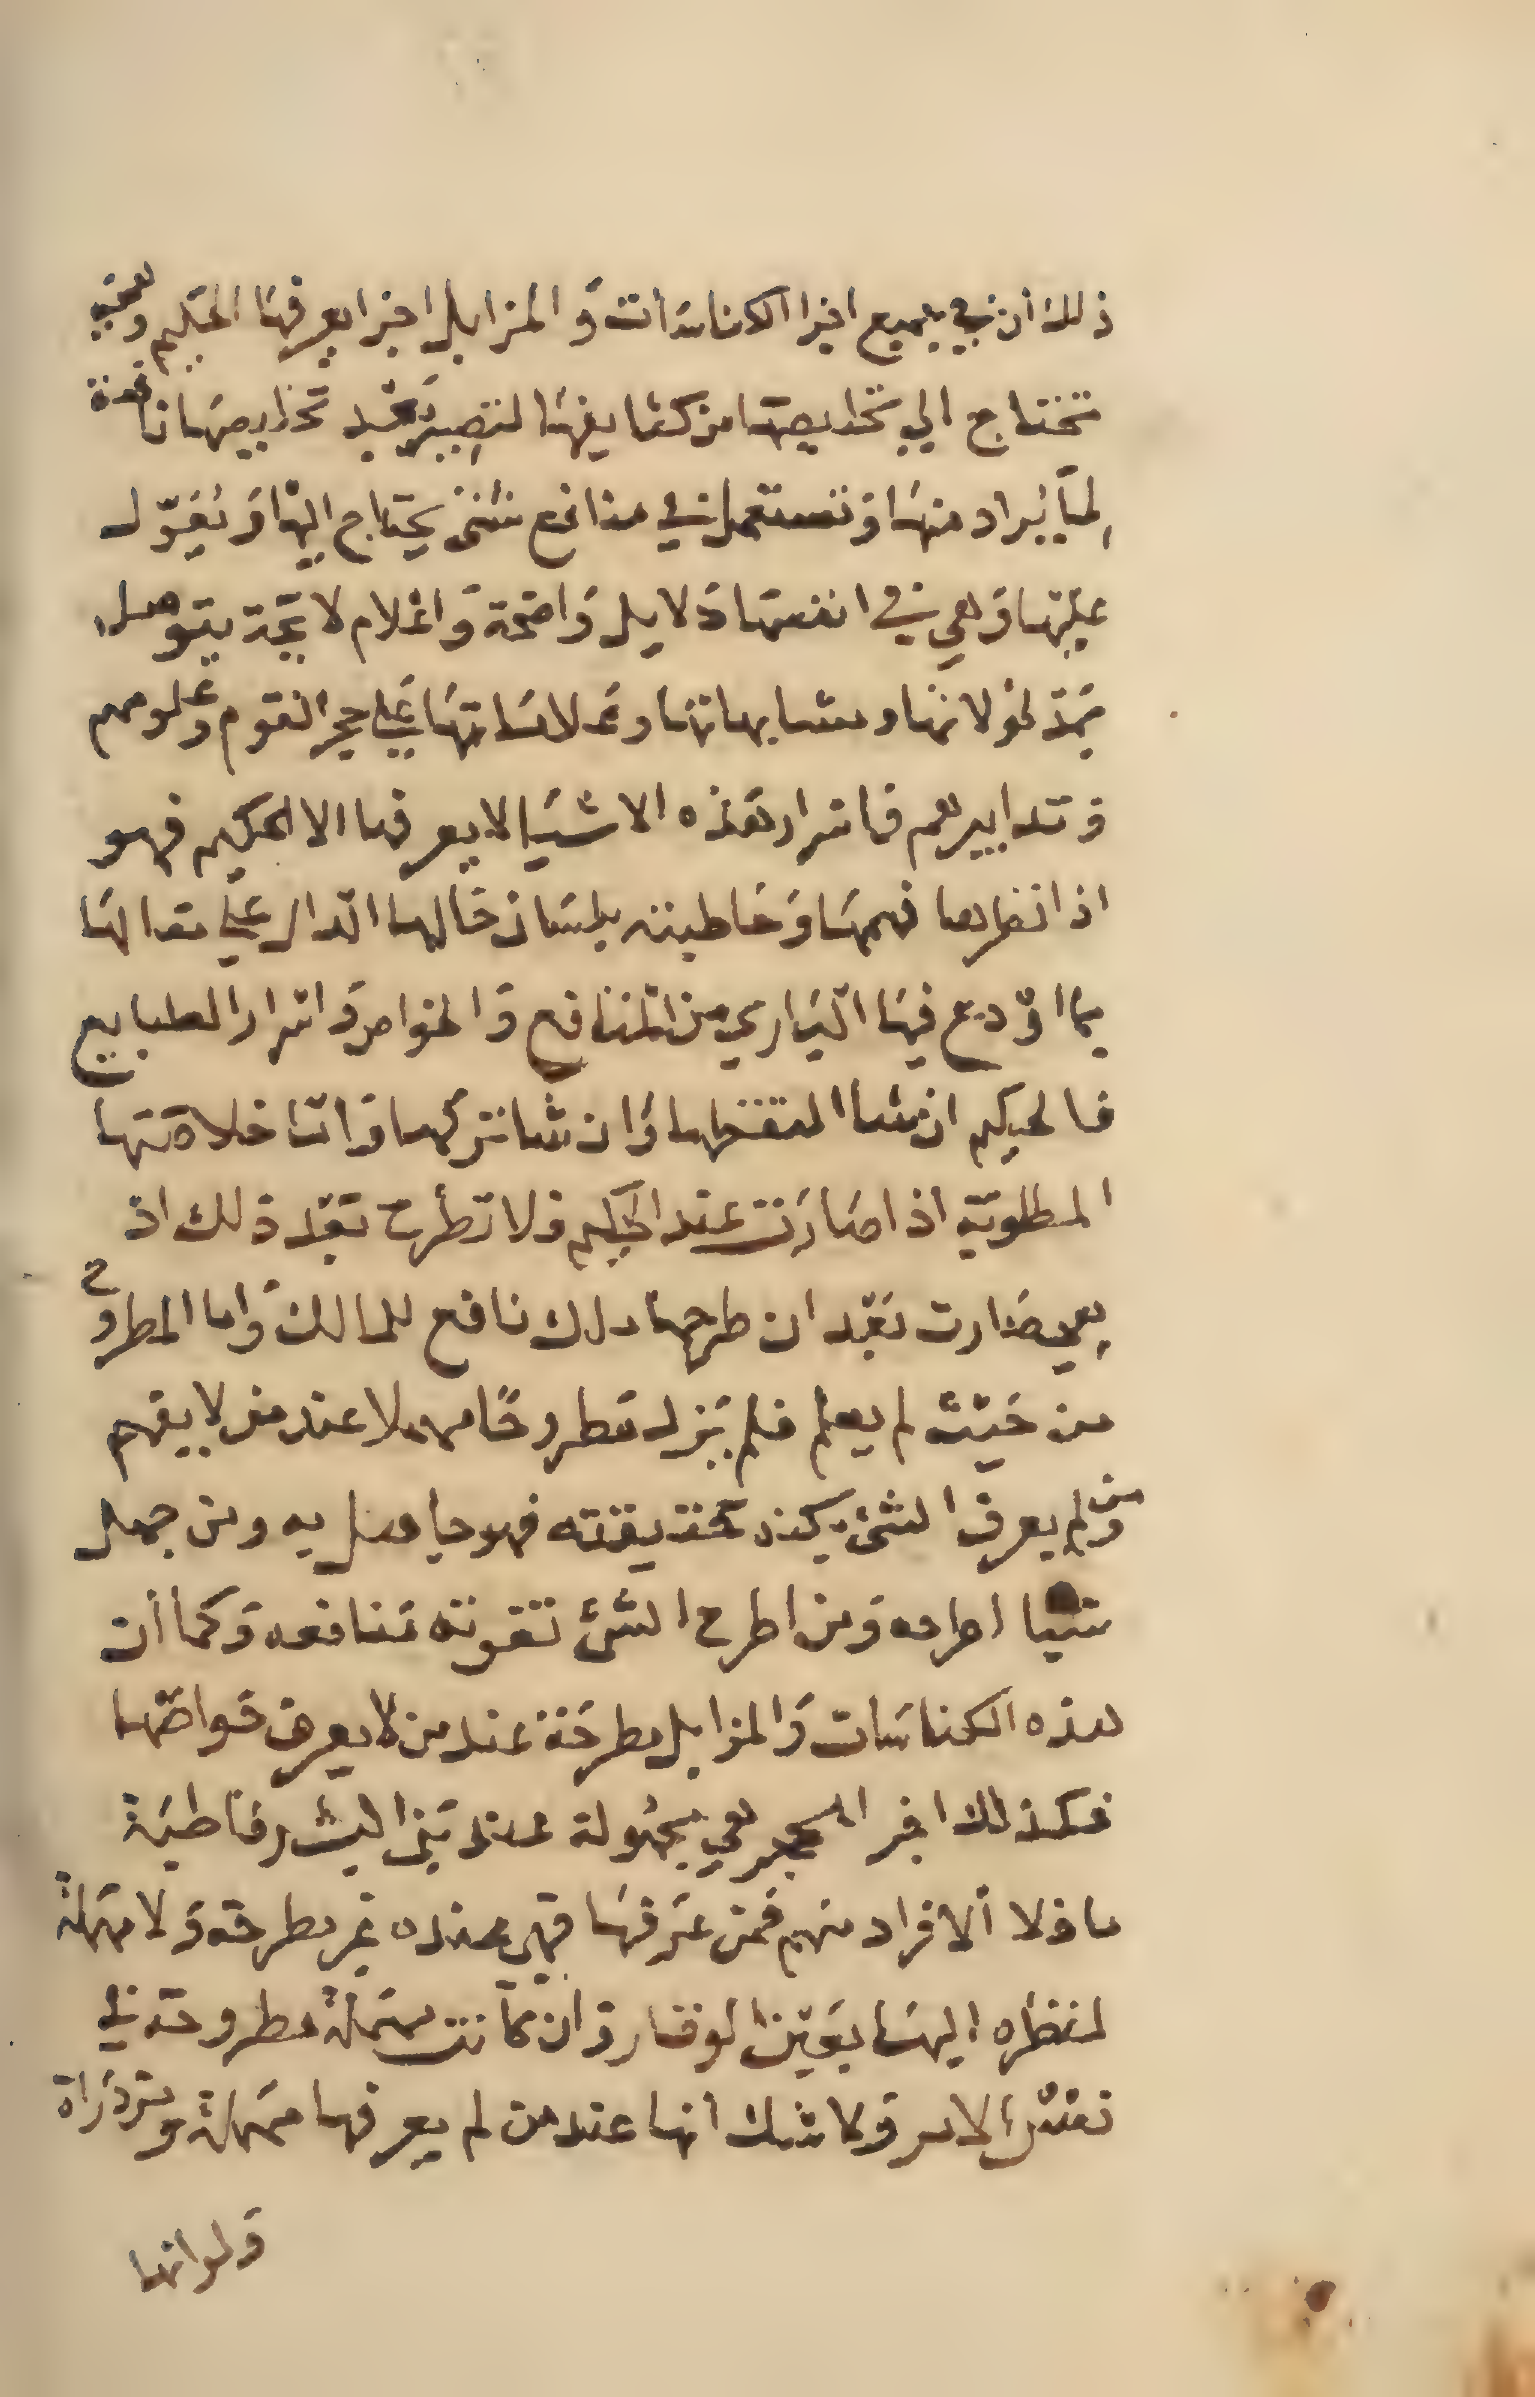 ذلك أن في جميع اجزا الكناسات والمزابل اجزا يعرفها الحكيم وهي
تحتاج الي تخليصها من كثايفها لتصير بعد تخليصها نافعة
لما يراد منها وتستعمل في منافع شتى يحتاج اليها ويعول
عليها وهي في انفسها دلايل واضحة واعلام لايحة يتوصل
بمدلولاتها ومشابهاتها وعلاماتها علي حجر القوم وعلومهم
وتدابيرهم فاسرار هذه الاشيا لا يعرفها الا الحكيم فهو
اذا نظرها فهمها وخاطبته بلسان حالها الدال علي مقالها
بما اودع فيها الباري من المنافع والخواص واسرار الطبايع
فالحكيم ان شا التقطها وان شا تركها واما خلاصتها
المطلوبة اذا صارت عند الحكيم فلا تطرح بعد ذلك اذ
هي صارت بعد ان طرحها ذلك نافع للمالك واما المطروح
من حيث لم يعلم فلم يزل مطروحا مهملا عند من لا يفهم
ومن لم يعرف الشئ بكنه حقيقته فهو جاهل به ومن جهل
شيا اطرحه ومن اطرح الشئ تفوته منافعه وكما أن
هذه الكناسات والمزابل مطرحة عند من لا يعرف خواصها
فكذلك اجزا الحجر هي مجهولة عند بني البشر قاطبة
ما خلا ألافراد منهم فمن عرفها فهي عنده غير مطرحة ولا مهملة
لنظره اليها بعين الوقار وان كانت مهملة مطروحة في
نفس الامر ولا شك انها عند من لم يعرفها مهملة ومزدراة
ولوانها